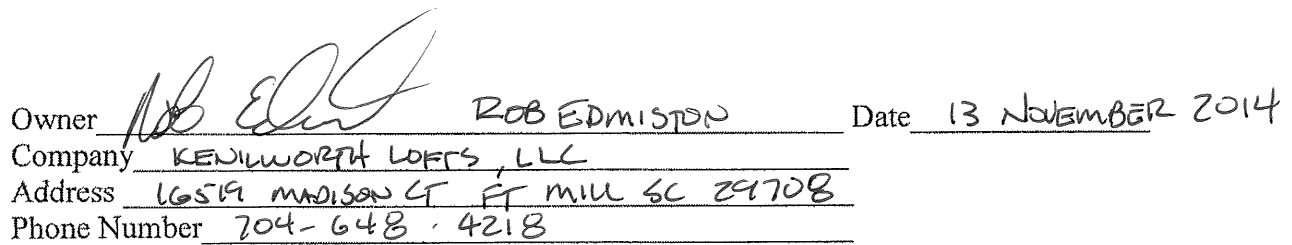 Owner Rob Edmiston ROB EDMISTON Date 13 NOVEMBER 2014
Company KENILWORTH LOFTS, LLC
Address 16519 MADISON CT FT MILL SC 29708
Phone Number 704-648.4218